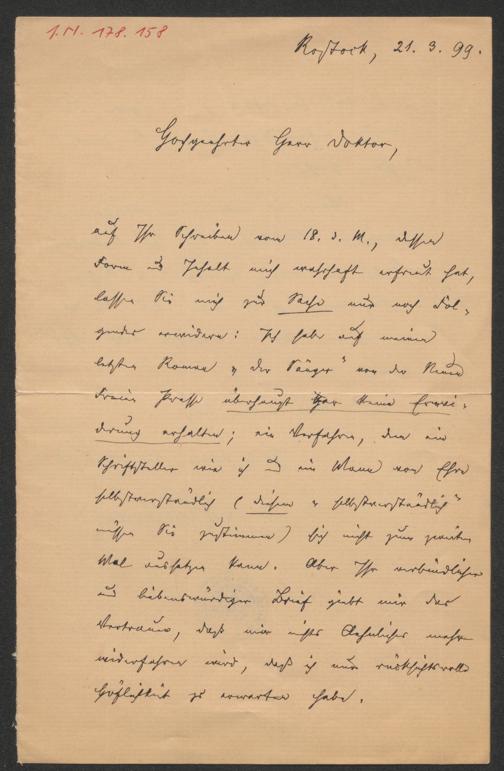 I.N. 178.158
Rostock, 21. 3. 99.
Hochgeehrter Herr Doktor,
auf Ihr Schreiben vom 18. d. M., dessen
Form und Inhalt mich wahrhaft erfreut hat,
lassen Sie mich zur Sache nur noch Fol-
gendes erwidern: Ich habe auf meinen
letzten Roman „der Sänger" von der Neuen
Freien Presse überhaupt gar keine Erwi-
derung erhalten; ein Verfahren, dem ein
Schriftsteller wie ich und ein Mann von Ehre
selbstverständlich (diesem „selbstverständlich"
müssen Sie zustimmen) sich nicht zum zweiten
Mal aussetzen kann. Aber Ihr verbindlicher
und liebenswürdiger Brief giebt mir das
Vertrauen, daß mir nichts Aehnliches mehr
widerfahren wird, daß ich nur rücksichtsvolle
Höflichkeit zu erwarten habe.